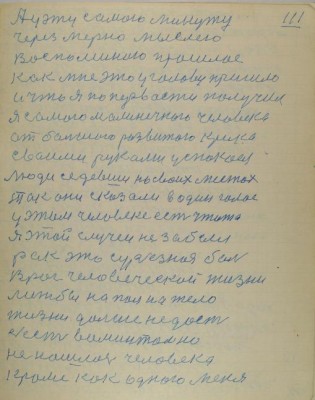 111
А у эту самого минуту
через мерно мыслею
воспоминаю прошлое
Как мне это у голову пришло
и что я по первости получил
я самого малинечного человека
от бальшого развитого крика
сваими руками успокоел
Люди седевши по своих местах
Так они сказали в один голос
у этим человеке есть что то
я этой случеи не забыл
рак это сурьезная бол
враг человеческой жизни
лишбы напал на тело
жизни дольше не даст
есть
не нашлос человека
кроме как одного меня